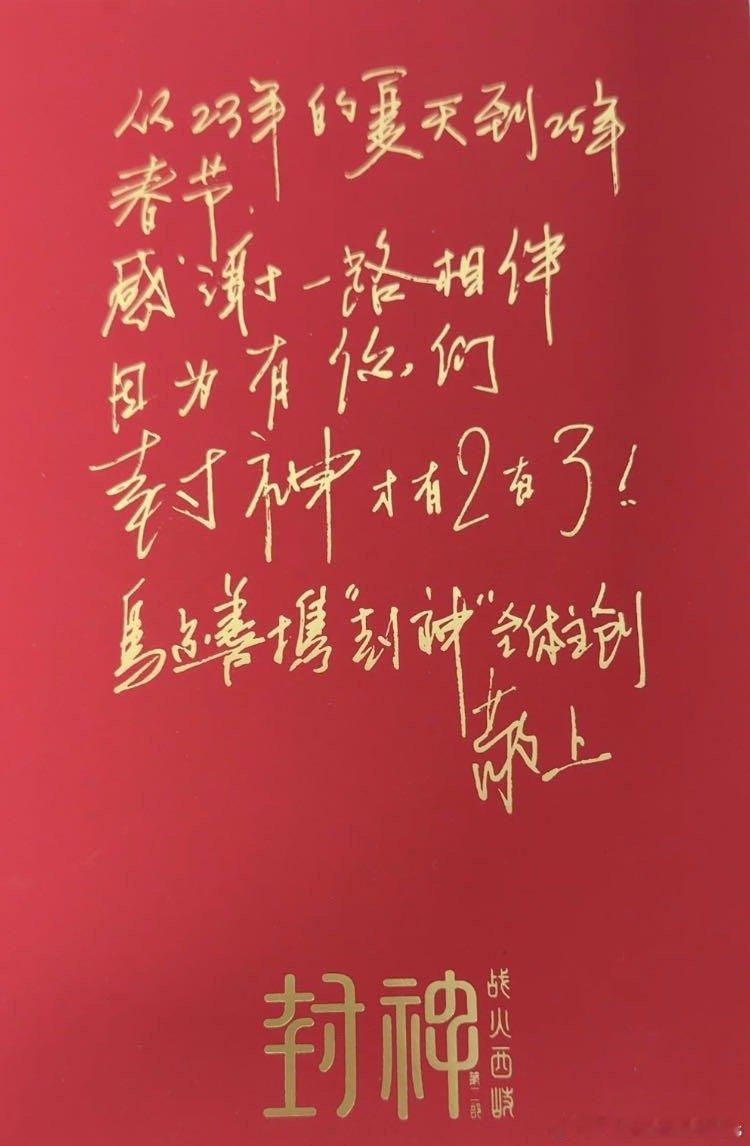 从23年的夏天到25年
春节.
感谢一路相伴
因为有你们
封神才有2有3!
馬 善携"封神"全体主创
上
封神
第二部
战火西岐